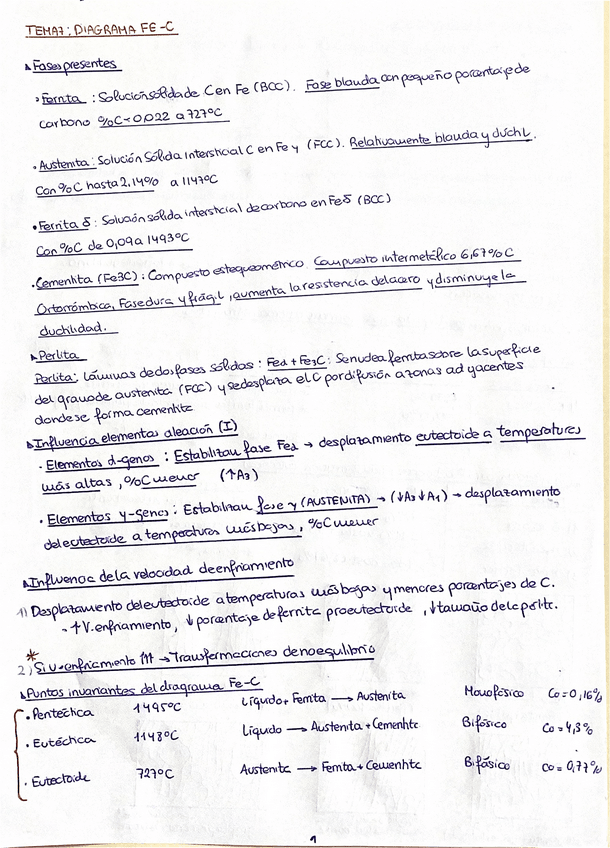 TEMA7: DIAGRAMA FE-C
Fases presentes
· Ferrita : Solución sólida de C en Fe (BCC). Fase blauda con pequeño porcentaje de
carbono %C=0,022 a 727ºC
· Austenita : Solución Sólida Intersticial C en Fe γ (FCC). Relativamente blauda y dúctil.
Con %C hasta 2,14% a 1147ºC
· Ferrita δ : Solución sólida intersticial de carbono en Fe δ (BCC)
Con %C de 0,09 a 1493ºC
· Cementita (Fe3C) : Compuesto estequeométrico. Compuesto intermetálico 6,67%C
Ortorrómbica, Fase dura y frágil, aumenta la resistencia del acero y disminuye la
ductilidad.
Perlita
Perlita: láminas de dos fases sólidas : Feα + Fe3C : Se nuclea ferrita sobre la superficie
del grano de austenita (FCC) y se desplaza el C por difusión a zonas adyacentes
donde se forma cementita
Influencia elementos aleación (I)
· Elementos α-genos : Estabilizan fase Feα → desplazamiento eutectoide a temperaturas
más altas, %C menor (↑A3)
· Elementos γ-genos : Estabilizan fase γ (AUSTENITA) → (↓A3 ↓A1) → desplazamiento
del eutectoide a temperaturas más bajas, %C menor
Influencia de la velocidad de enfriamiento
1) Desplazamiento del eutectoide a temperaturas más bajas y menores porcentajes de C.
- ↑V.enfriamiento, ↓ porcentaje de ferrita proeutectoide, ↓ tamaño de la perlita.
*
2) Si v.enfriamiento ↑↑↑ → Transformaciones de no equilibrio
Puntos invariantes del diagrama Fe-C
· Peritéctica 1495ºC Líquido + Ferrita → Austenita Monofásico Co=0,16%
· Eutéctica 1148ºC Líquido → Austenita + Cementita Bifásico Co=4,3%
· Eutectoide 727ºC Austenita → Ferrita + Cementita Bifásico Co=0,77%
1